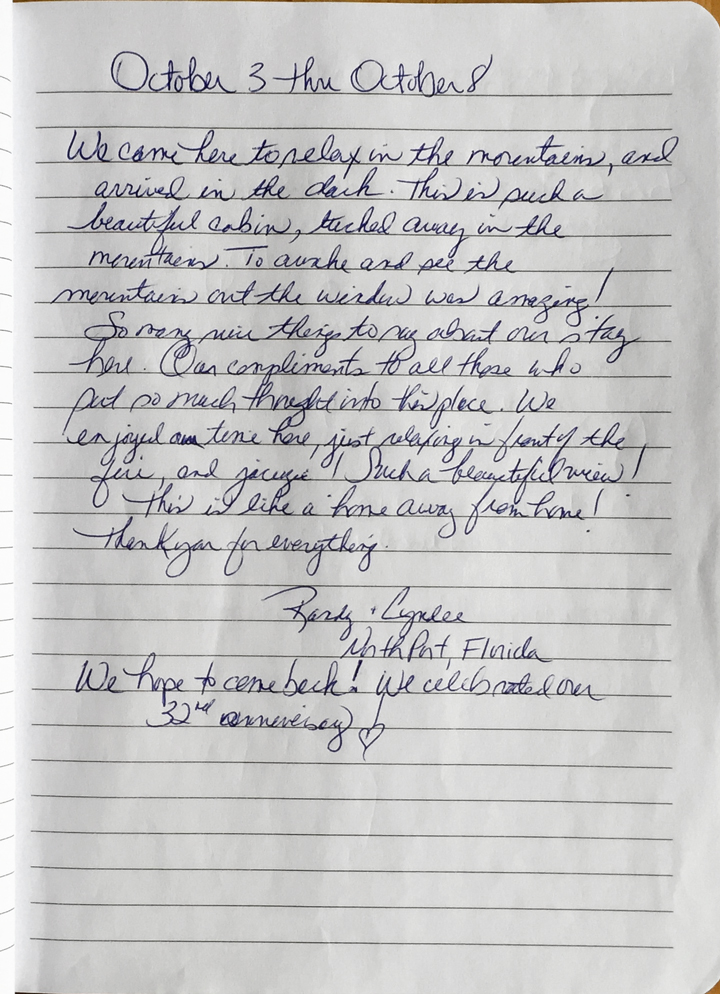 October 3 thru October 8
We came here to relax in the mountains, and
arrived in the dark. This is such a
beautiful cabin, tucked away in the
mountains. To awake and see the
mountains out the window was amazing!
So many nice things to say about our stay
here. Our compliments to all those who
put so much thought into this place. We
enjoyed our time here, just relaxing in front of the
fire, and jacuzzi! Such a beautiful view!
This is like a home away from home!
Thank you for everything.
Randy +
North Port, Florida
We hope to come back! We celebrated our
32nd anniversary ♡